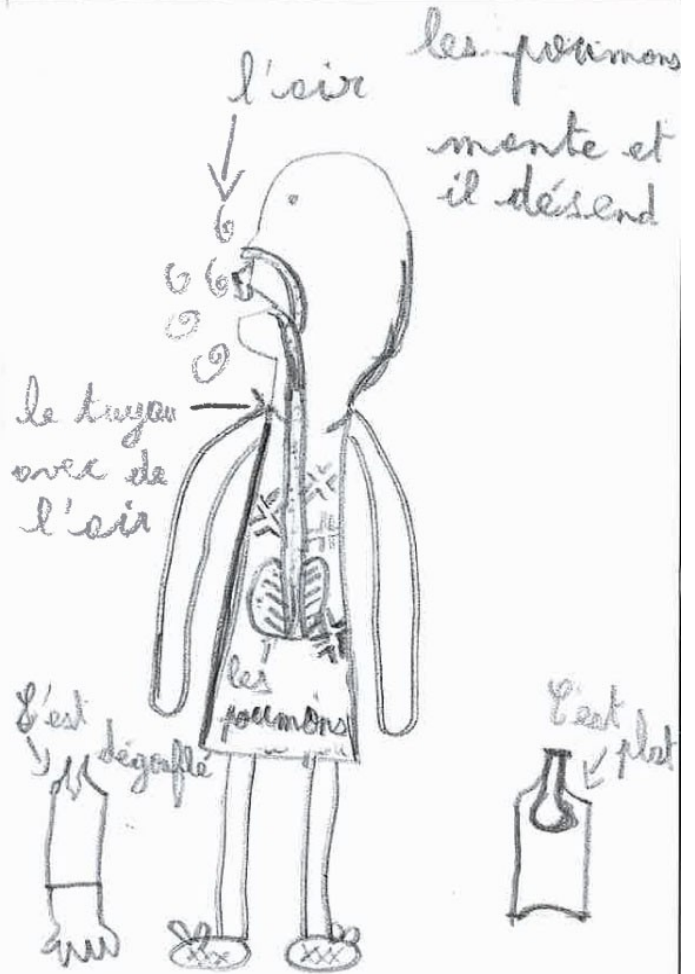 l'air
les poumons
monte et
il désend
le tuyau
avec de
l'air
les
poumons
C'est
dégouflé
C'est
plat